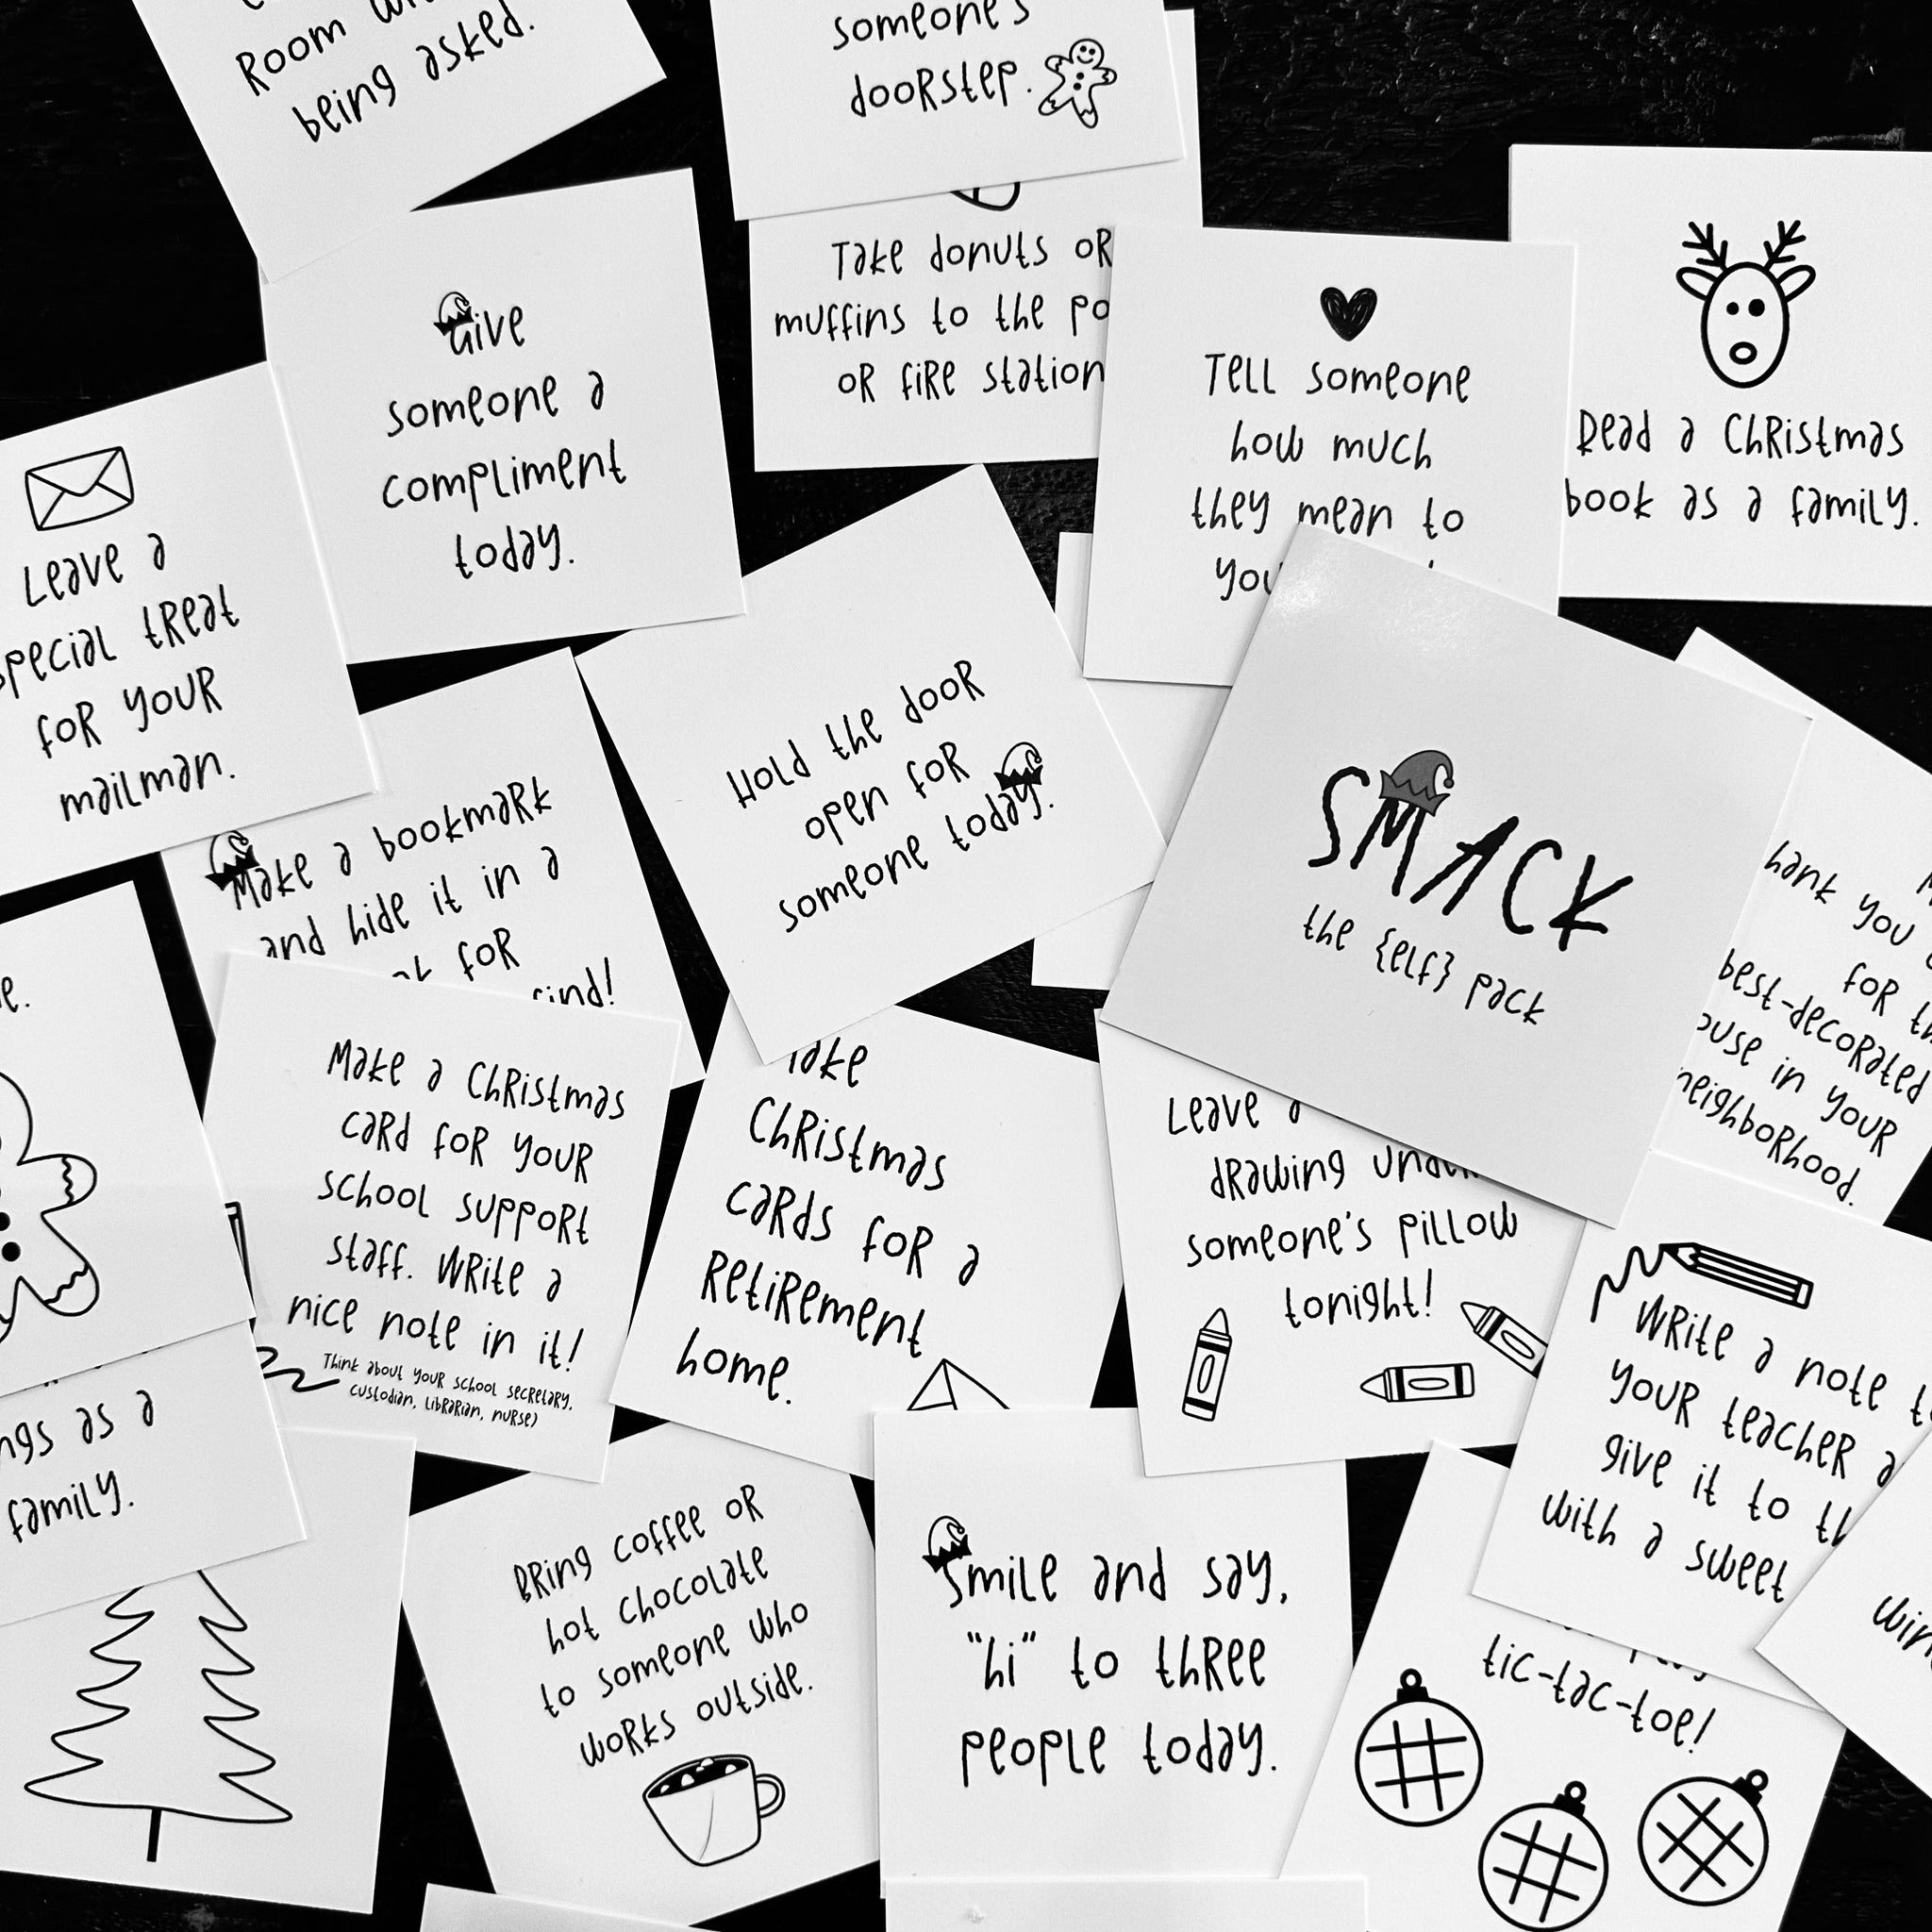 Room
being asked.
someone's
doorstep.
Take donuts or
muffins to the
or fire station
Give
someone a
compliment
today.
Tell someone
how much
they mean to
Read a Christmas
book as a family.
Leave a
special treat
for your
mailman.
Hold the door
open for
someone today.
SMACK
the {elf} pack
Make a bookmark
and hide it in a
for
Make a Christmas
card for your
school support
staff. Write a
nice note in it!
Think about your school secretary,
custodian, librarian, nurse)
Christmas
cards for a
retirement
home.
Leave a
drawing
someone's pillow
tonight!
you
for
best-decorated
in your
neighborhood.
Write a note
your teacher
give it to
with a sweet
as a
family.
Bring coffee or
hot chocolate
to someone who
works outside.
Smile and say,
"hi" to three
people today.
tic-tac-toe!